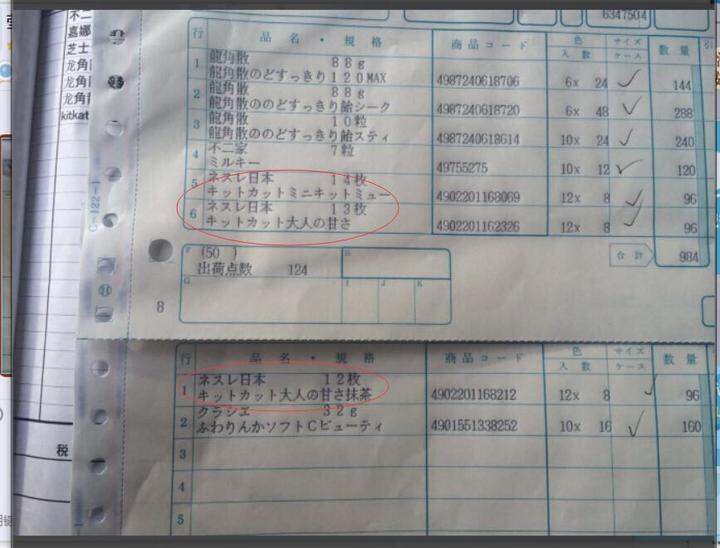 不二
嘉娜
芝士
龙角
龙角
龙角
kitkat
6347504
行 品名・規格 商品コード 色 サイズ 数量
入数 ケース
1 龍角散 88g
龍角散のどすっきり120MAX 4987240618706 6x 24 144
2 龍角散 88g
龍角散ののどすっきり飴シーク 4987240618720 6x 48 288
3 龍角散 10粒
龍角散ののどすっきり飴スティ 4987240618614 10x 24 240
4 不二家 7粒
ミルキー 49755275 10x 12 120
5 ネスレ日本 14枚
キットカットミニキットミュー 4902201168069 12x 8 96
6 ネスレ日本 13枚
キットカット大人の甘さ 4902201162326 12x 8 96
(50) 合計 984
出荷点数 124
G I J K
8
C-122-1
行 品名・規格 商品コード 色 サイズ 数量
入数 ケース
1 ネスレ日本 12枚
キットカット大人の甘さ抹茶 4902201168212 12x 8 96
2 クラシエ 32g
ふわりんかソフトCビューティ 4901551338252 10x 16 160
3
4
5
税